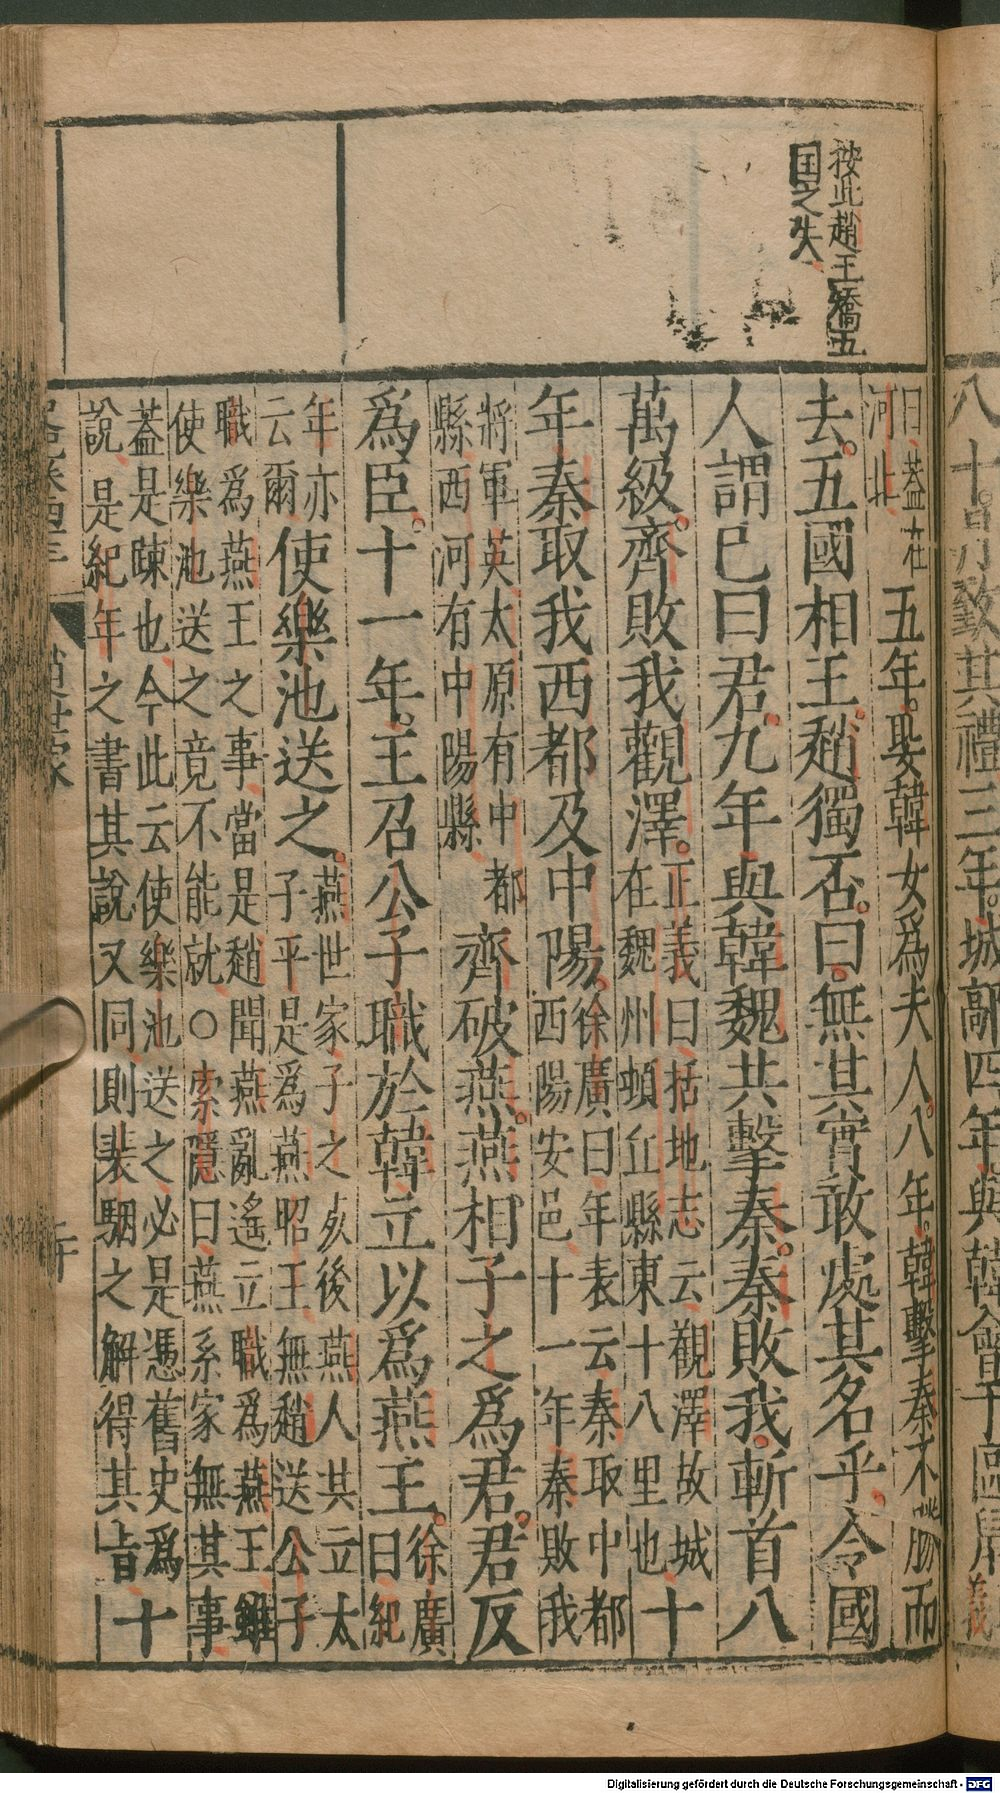 按此趙王獨五
国之失
曰蓋在
河北
五年娶韓女爲夫人八年韓擊秦不勝而
去五國相王趙獨否曰無其實敢處其名乎令國
人謂已曰君九年與韓魏共擊秦秦敗我斬首八
萬級齊敗我觀澤
正義曰括地志云觀澤故城
在魏州頓丘縣東十八里也
十
年秦取我西都及中陽
徐廣曰年表云秦取中都
西陽安邑十一年秦敗我
將軍英太原有中都
縣西河有中陽縣
齊破燕燕相子之爲君君反
爲臣十一年王召公子職於韓立以爲燕王
徐廣
曰紀
年亦
云爾
使樂池送之
燕世家子之死後燕人共立太
子平是爲燕昭王無趙送公子
職爲燕王之事當是趙聞燕亂遙立職爲燕王雖
使樂池送之竟不能就○索隱曰燕系家無其事
蓋是踈也今此云使樂池送之必是憑舊史爲
說是紀年之書其說又同則裴駰之解得其旨
十
史記卷四十三
趙世家
八十月致其禮三年城鄗四年與韓會于區鼠
Digitalisierung gefördert durch die Deutsche Forschungsgemeinschaft - DFG